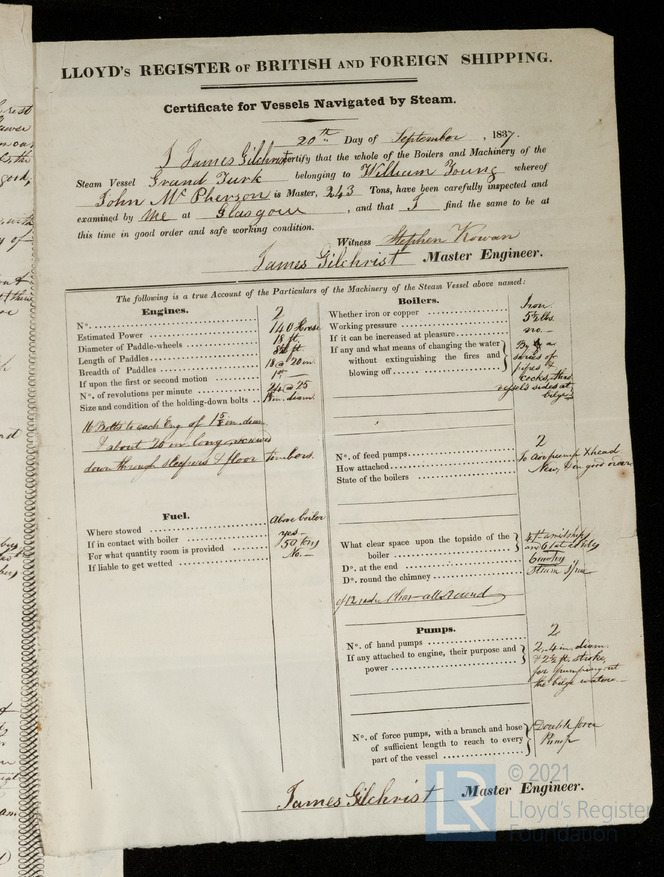 LLOYD's REGISTER OF BRITISH AND FOREIGN SHIPPING.
Certificate for Vessels Navigated by Steam.
20th Day of September, 1837.
I James Gilchrist certify that the whole of the Boilers and Machinery of the
Steam Vessel Grand Turk belonging to William Young whereof
John McPherson is Master, 243 Tons, have been carefully inspected and
examined by Me at Glasgow, and that I find the same to be at
this time in good order and safe working condition.
Witness Stephen Rowan
James Gilchrist Master Engineer.
The following is a true Account of the Particulars of the Machinery of the Steam Vessel above named:
Engines.
No. 2
Estimated Power 140 Horse
Diameter of Paddle-wheels 18 ft.
Length of Paddles ft.
Breadth of Paddles 18 @ 20 in.
If upon the first or second motion 1st
No. of revolutions per minute 24 @ 25
Size and condition of the holding-down bolts in. diam.
16 Bolts to each Eng. of 1 5/8 in. diam.
& about 20 in. long secured
down through sleepers & floor timbers.
Fuel.
Where stowed Above boiler
If in contact with boiler yes—
For what quantity room is provided 50 tons
If liable to get wetted No.—
Boilers.
Whether iron or copper Iron.
Working pressure 5 1/2 lbs.
If it can be increased at pleasure no.—
If any and what means of changing the water By a
without extinguishing the fires and series of
blowing off pipes &
cocks, thro
vessels sides at
bilges
No. of feed pumps 2
How attached to air pump Xhead
State of the boilers New, & in good order
What clear space upon the topside of the
boiler amidships
Do. at the end
Do. round the chimney Steam
of 12 clear all round
Pumps.
No. of hand pumps 2
If any attached to engine, their purpose and 2, 4 in. diam.
power & 2 1/2 ft. stroke,
for pumping out
the bilge water.—
No. of force pumps, with a branch and hose Double force
of sufficient length to reach to every Pump
part of the vessel
James Gilchrist Master Engineer.
LR
© 2021
Lloyd's Register
Foundation